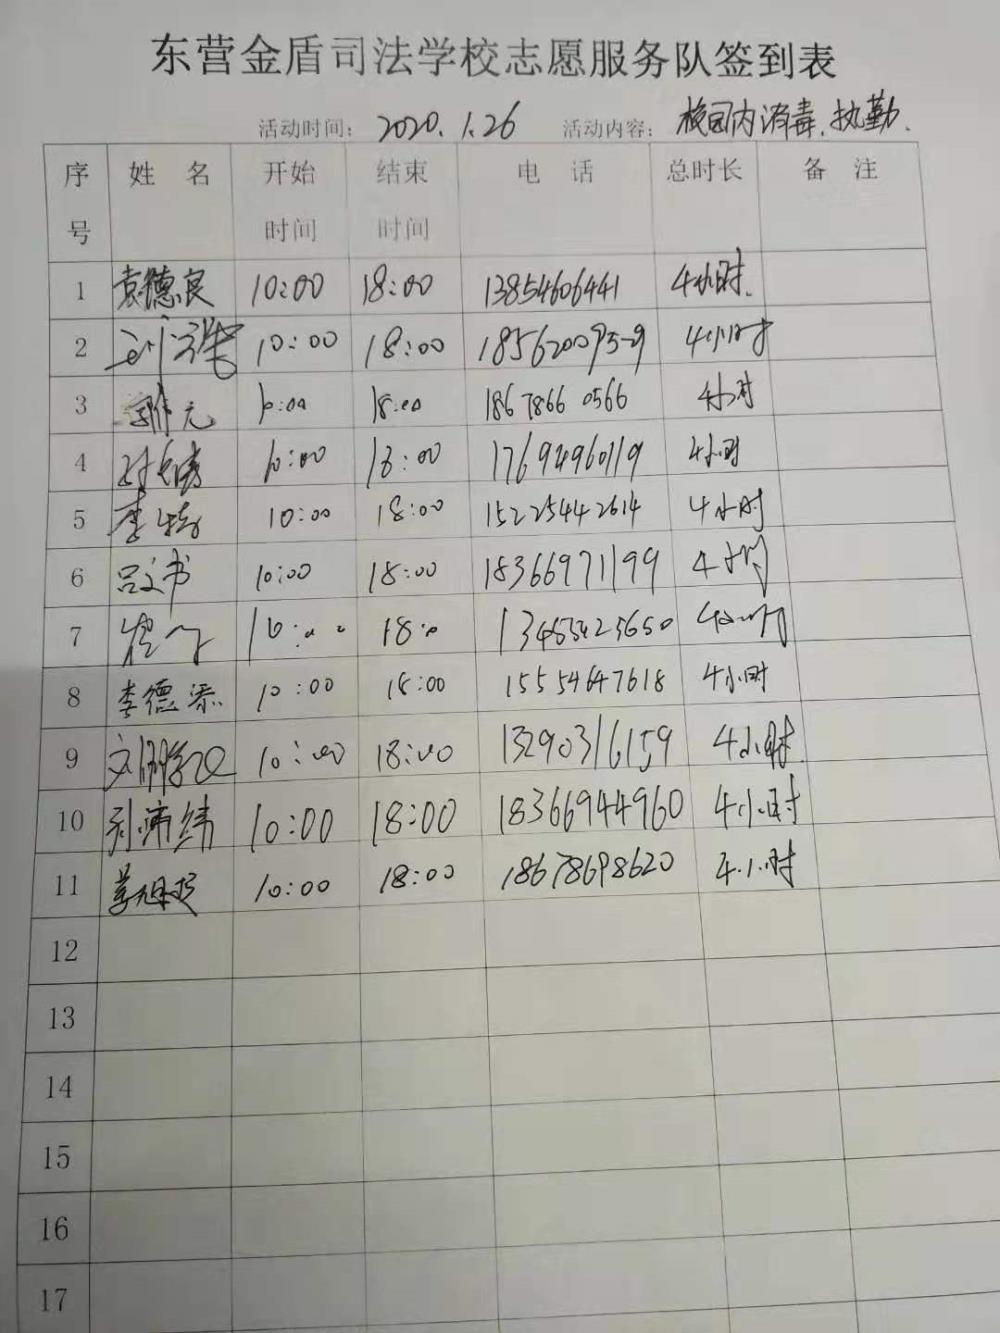 东营金盾司法学校志愿服务队签到表
活动时间： 2020.1.26 活动内容： 校园内消毒.执勤.
序号 姓 名 开始时间 结束时间 电 话 总时长 备 注
1 袁德良 10:00 18:00 13854606441 4小时.
2 10:00 18:00 18562009359 4小时
3 10:00 18:00 18678660566 4小时
4 10:00 18:00 17694960119 4小时
5 李 10:00 18:00 15225442614 4小时
6 吕文书 10:00 18:00 18366971199 4小时
7 10:00 18:0 4小时
8 李德添 10:00 18:00 15554647618 4小时
9 10:00 18:00 13290316159 4小时.
10 10:00 18:00 18366944960 4小时
11 10:00 18:00 18678698620 4小时
12
13
14
15
16
17